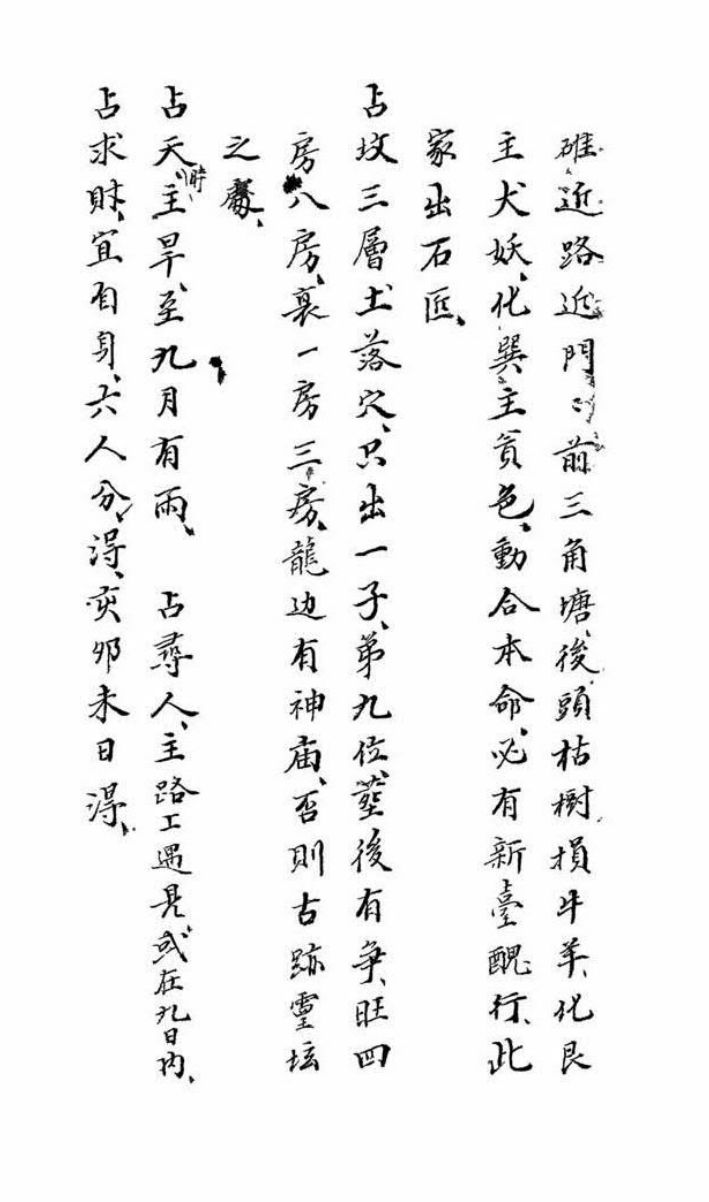 碓近路近門、前三角塘、後頭枯樹損牛羊、化艮
主犬妖、化巽主貧色、動合本命、必有新臺醜行、此
家出石匠、
占坟三層土落穴、只出一子、第九位、塟後有争、旺四
房八房、衰一房三房、龍边有神庙、否則古跡靈坛
之處、
占天時主旱、至九月有雨、　占尋人、主路上遇見或在九日内、
占求財、宜自身、六人分、淂、亥卯未日淂、